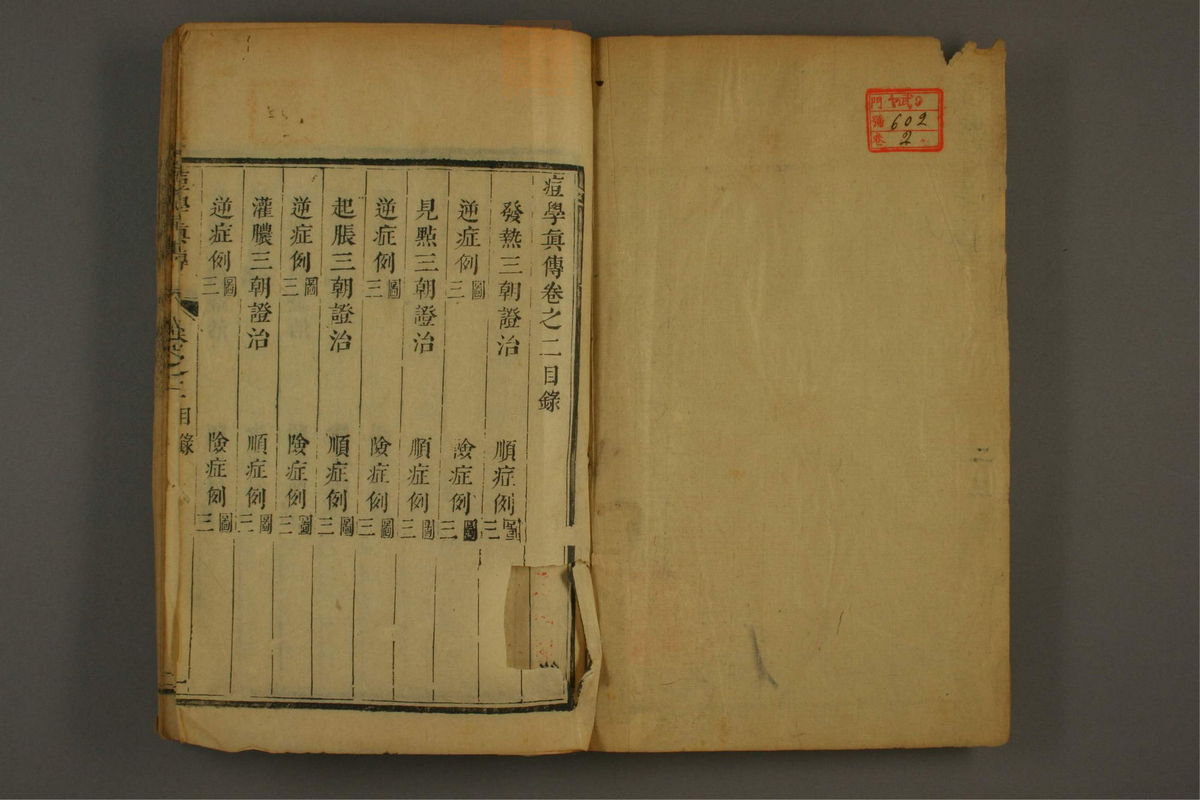 門
號 602
卷 2
痘學眞傳卷之二目錄
發熱三朝證治 順症例圖三
逆症例圖三 險症例圖三
見點三朝證治 順症例圖三
逆症例圖三 險症例圖三
起脹三朝證治 順症例圖三
逆症例圖三 險症例圖三
灌膿三朝證治 順症例圖三
逆症例圖三 險症例圖三
痘學眞傳 卷之二目錄